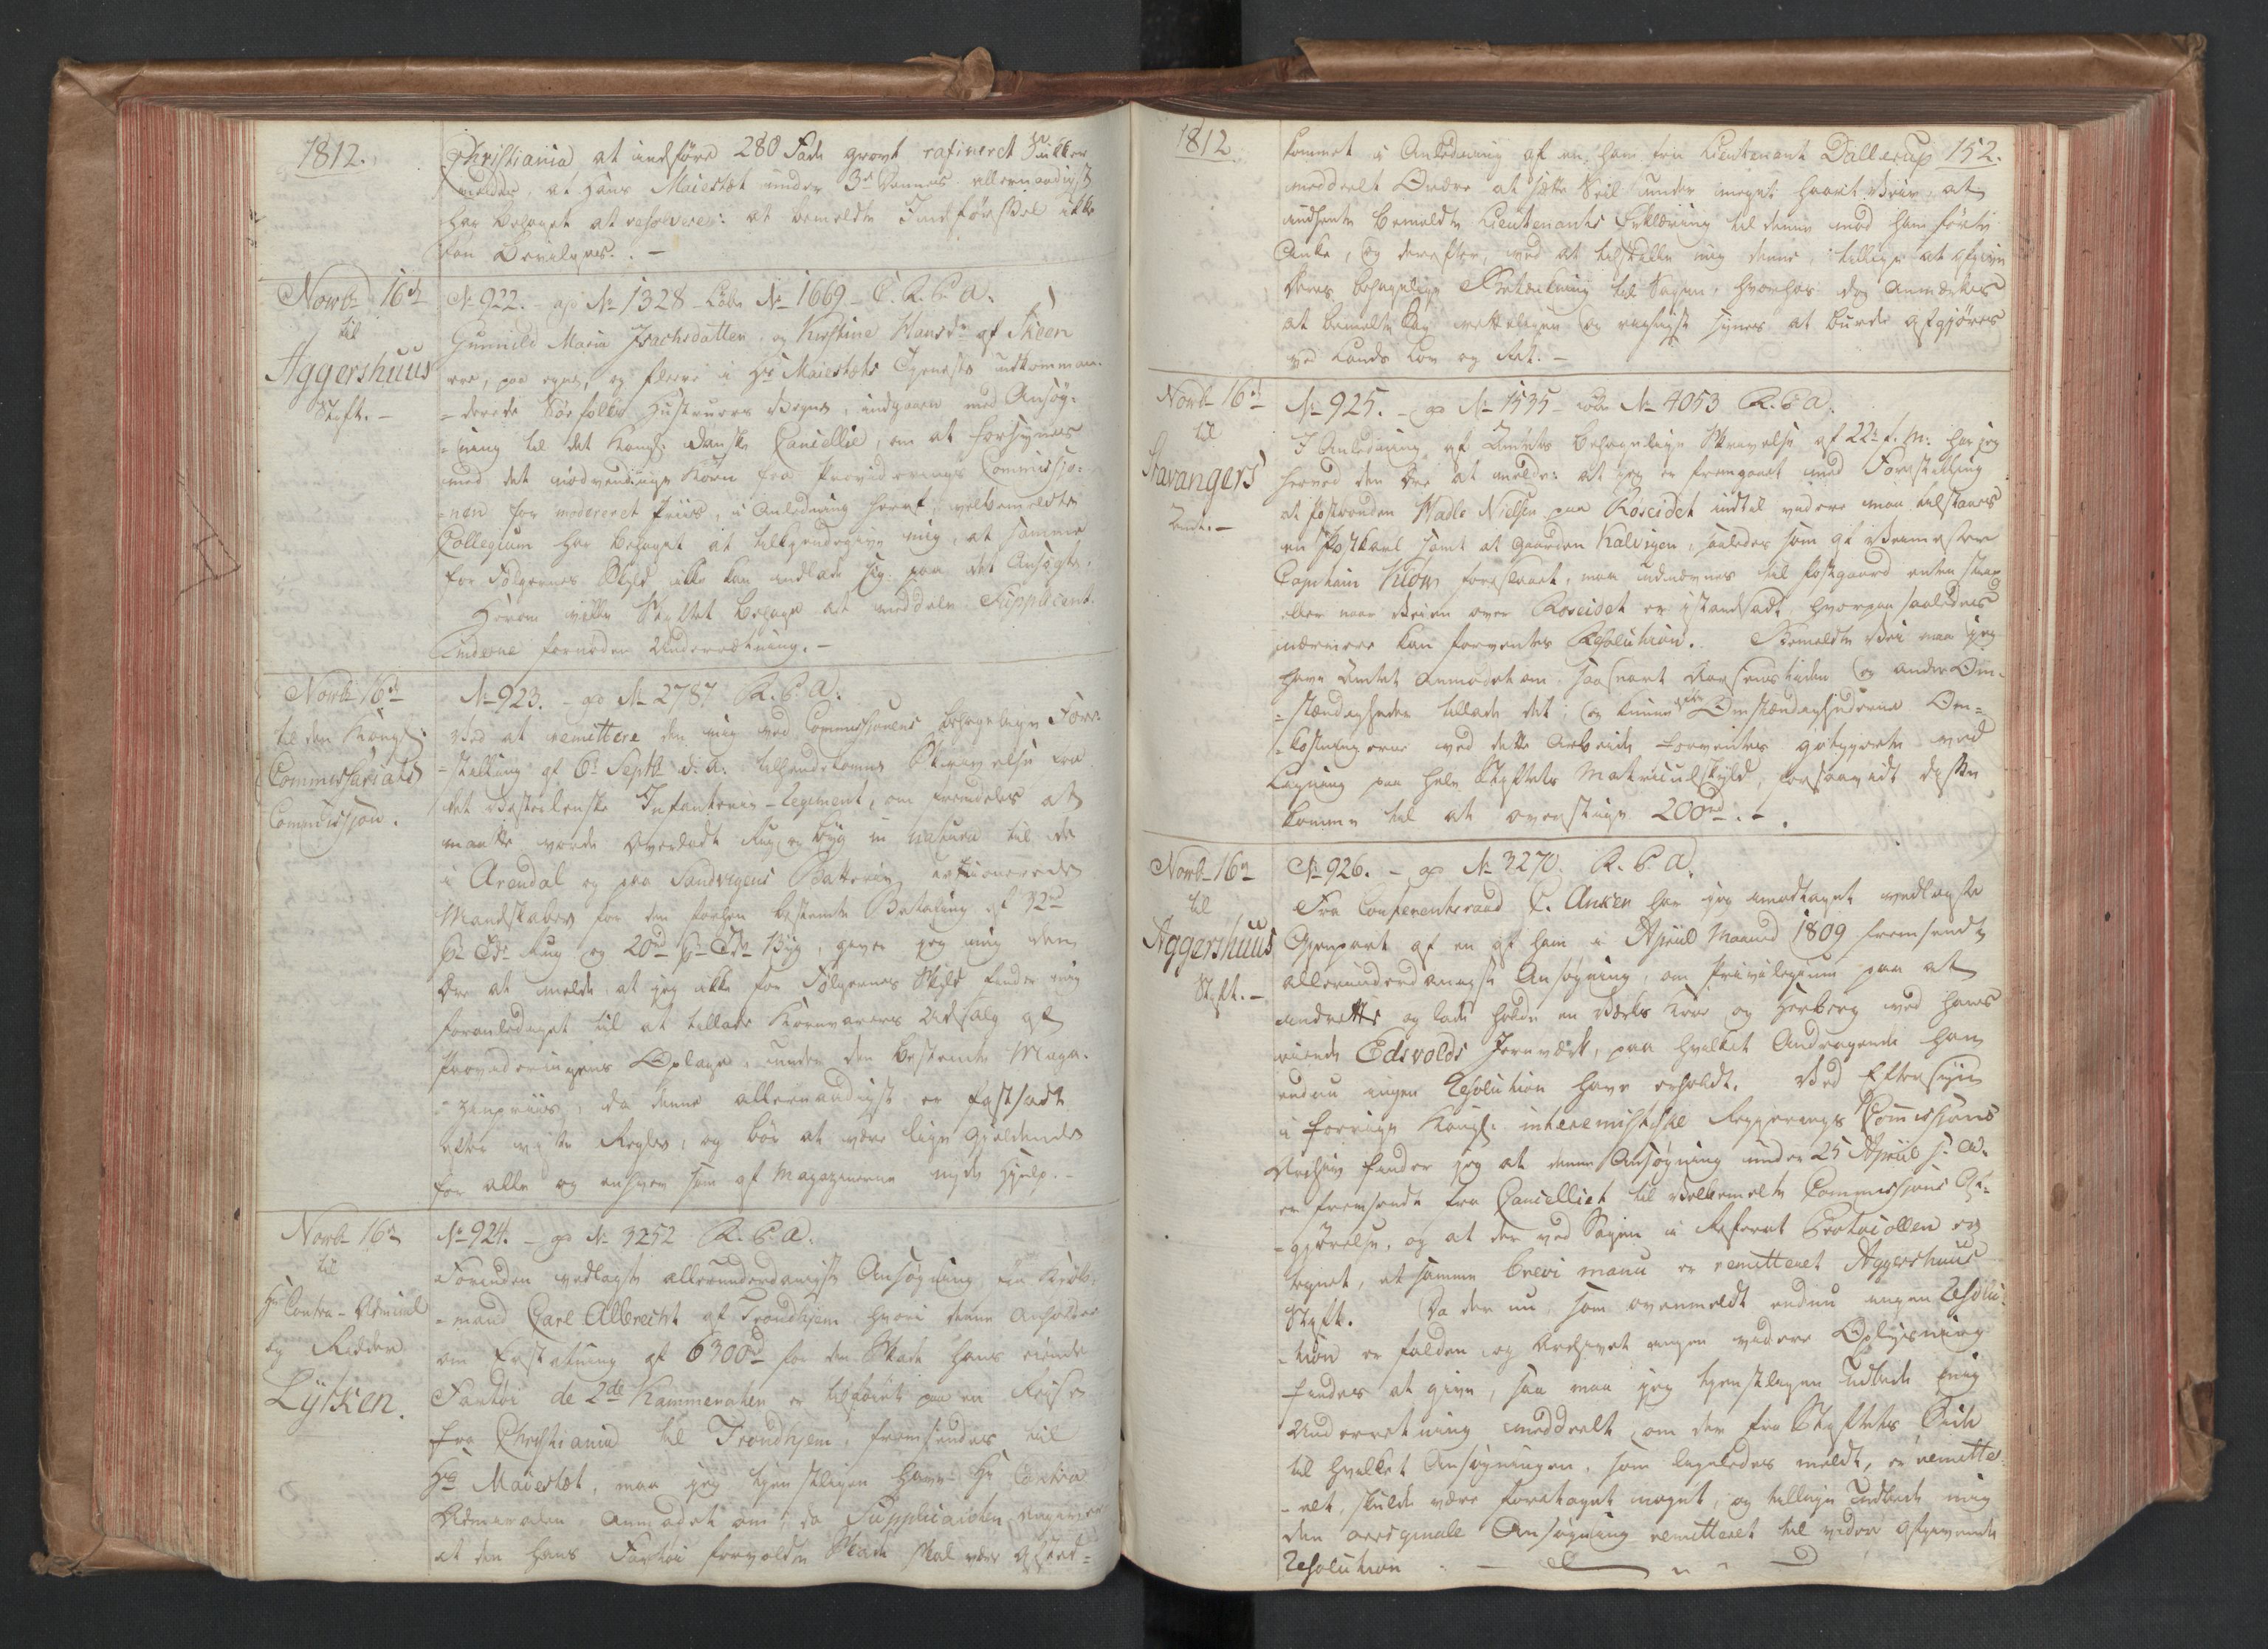 1812.
Christiania at indføre 280 Fade grovt rafineret Sukker
meldes, at Hans Maiestæt under 3de dennes allernaadigst
har behaget at resolvere: at bemeldte Indførsel ikke
kan Bevilges. -
Novbr 16de
til
Aggershuus
Stift. -
No 922. - ges No 1328 - Løbe No 1669 - C. R. C. A.
Gunnild Maria Isachsdatter og Kirstine Hansdr af Skeen
paa egne, og fleere i Hs Maiestæts Tjeneste udkomman-
-derede Søefolks Hustruers Vegne, indgaaen med Ansøg-
-ning til det Kongl. danske Cancellie, om at forsynes
med det nødvendige Korn fra Provideringscommissjo-
-nen for modereret Priis, i Anledning heraf, velbemeldte
Collegium har behaget at tilkjendegive mig, at samme
for Følgernes Skyld ikke kan indlade sig paa det Ansøgte.
Herom ville Stiftet behage at meddele Supplicant-
inderne fornøden Underretning. -
Novbr 16de
til den Kongl.
Commissariats
Commissjon.
No 923. - ges No 2787 R. C. A.
Ved at remittere den mig ved Commissjonens behagelige Fore-
-stilling af 6te Septbr d. A. tilhændekomne Skrivelse fra
det Vesterlenske Infanterie-Regiment, om fremdeles at
maatte vorde overladt Rug og Byg in natura til de
i Arendal og paa Sandvigens Batterie stationerede
Mandskaber for den forhen bestemte Betaling af 32rd
pr Tde Rug og 20rd pr Tde Byg, giver jeg mig den
Ære at melde at jeg ikke for Følgernes Skyld finder mig
foranlediget til at tillade Kornvarers Udsalg af
Provideringens Oplage under den bestemte Maga-
-zinpriis, da denne allernaadigst er fastsadt
efter visse Regler, og bør at være lige gjeldende
for alle og enhver som af Magazinerne nyde Hjelp. -
Novbr 16de
til
Hr Contra-Admiral
og Ridder
Lützken.
No 924. - ges No 3252 R. C. A.
Forinden vedlagte allerunderdanigste Ansøgning fra Kjøb-
-mand Carl Albrecht af Trondhjem hvori denne anholder
om Erstatning af 6300rd for den Skade hans eiende
Fartøi de 2de Kammerater er tilføiet paa en Reise
fra Christiania til Trondhjem, fremsendes til
Hs Maiestæt, maa jeg tjenstligen have Hr Contra
Admiralen anmodet om, da Supplicanten angiver
at den hans Fartøi forvoldte Skade skal være afsted-
1812
152.
kommet i Anledning af en ham fra Lieutenant Dallerup
meddeelt Ordre at sætte Seil under meget haardt Veir, at
indhente bemeldte Lieutenants Erklæring til denne mod ham førte
Anke, og derefter, ved at tilstille mig denne, tillige at afgive
Deres behagelige Betænkning til Sagen, hvorhos dog anmærkes
at bemeldte Sag rettelig og rigtigst synes at burde afgjøres
ved Lands Lov og Ret. -
Novbr 16de
til
Stavangers
Amt. -
No 925. - ges No 1535 - Løbe No 4053 R. C. A.
I Anledning af Amtets behagelige Skrivelse af 22de f. M. har jeg
herved den Ære at melde: at jeg er fremgaaet med Forestilling
at Postbonden Hadle Nielsen paa Roseidet indtil videre maa tilstaaes
en Postkarl samt at Gaarden Kalvigen, saaledes som af Veimester
Capitain Krom foreslaaet, maa udnævnes til Postgaard enten strax
eller naar Veien over Roseidet er istandsadt, hvorpaa saaledes
nærmere kan forventes Resolution. Bemeldte Vei maa jeg
have Amtet anmodet om saasnart Aarsenstiden og andre Om-
-stændigheder tillade det; og kunne efter Omstændighederne Om-
-kostningerne ved dette Arbeide forventes godtgjorte ved
Ligning paa hele Stiftets Matriculskyld, forsaavidt disse
komme til at overstige 200rd. -
Novbr 16de
til
Aggershuus
Stift. -
No 926. - ges No 3270 R. C. A.
Fra Conferentsraad C. Anker har jeg modtaget vedlagte
Gjenpart af en af ham i Apriil Maaned 1809 fremsendt
allerunderdanigst Ansøgning, om Privilegium paa at
indrette og lade holde en Værts Kroe og Herberg ved hans
eiende Edsvolds Jernværk, paa hvilket Andragende han
endnu ingen Resolution have erholdt. Ved Eftersyn
i forrige Kongl. interimistiske Regjerings Commissjons
Archiv finder jeg at denne Ansøgning under 25 Apriil s. A.
er fremsendt fra Cancelliet til Velbemeldte Commissjons Af-
-gjørelse, og at der ved Sagen i Referat Protocollen er
tegnet, at samme brevi manu er remitteret Aggershuus
Stift. Da der nu, som ovenmeldt endnu ingen Resolu-
-tion er falden, og Archivet ingen videre Oplysning
findes at give, saa maa jeg tjenstligen udbede mig
Underretning meddeelt, om der fra Stiftets Side
til hvilket Ansøgningen, som ligeledes meldt, er remitte-
-ret, skulde være foretaget noget, og tillige udbede mig
den originale Ansøgning remitteret til videre afgivende
Resolution. -